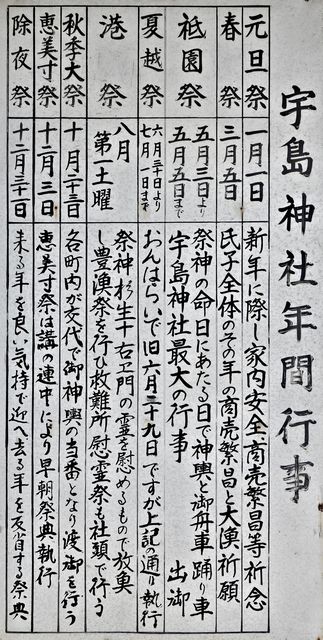 宇島神社年間行事
元旦祭
一月一日
新年に際し家内安全商売繁昌等祈念
春祭
三月五日
氏子全体のその年の商売繁昌と大漁祈願
祇園祭
五月三日より
五月五日まで
祭神の命日にあたる日で神輿と御舟車踊り車出御
宇島神社最大の行事
夏越祭
六月三十日より
七月一日まで
おんはらいで旧六月二十九日ですが上記の通り執行
港祭
八月
第一土曜
祭神杉生十右ヱ門の霊を慰めるもので放魚
し豊漁祭を行ひ救難所慰霊祭も社頭で行う
秋季大祭
十月二十三日
各町内が交代で御神輿の当番となり渡御を行う
恵美寸祭
十二月三日
恵美寸祭は講の連中により早朝祭典執行
除夜祭
十二月三十一日
来る年を良い気持で迎へ去る年を反省する祭典